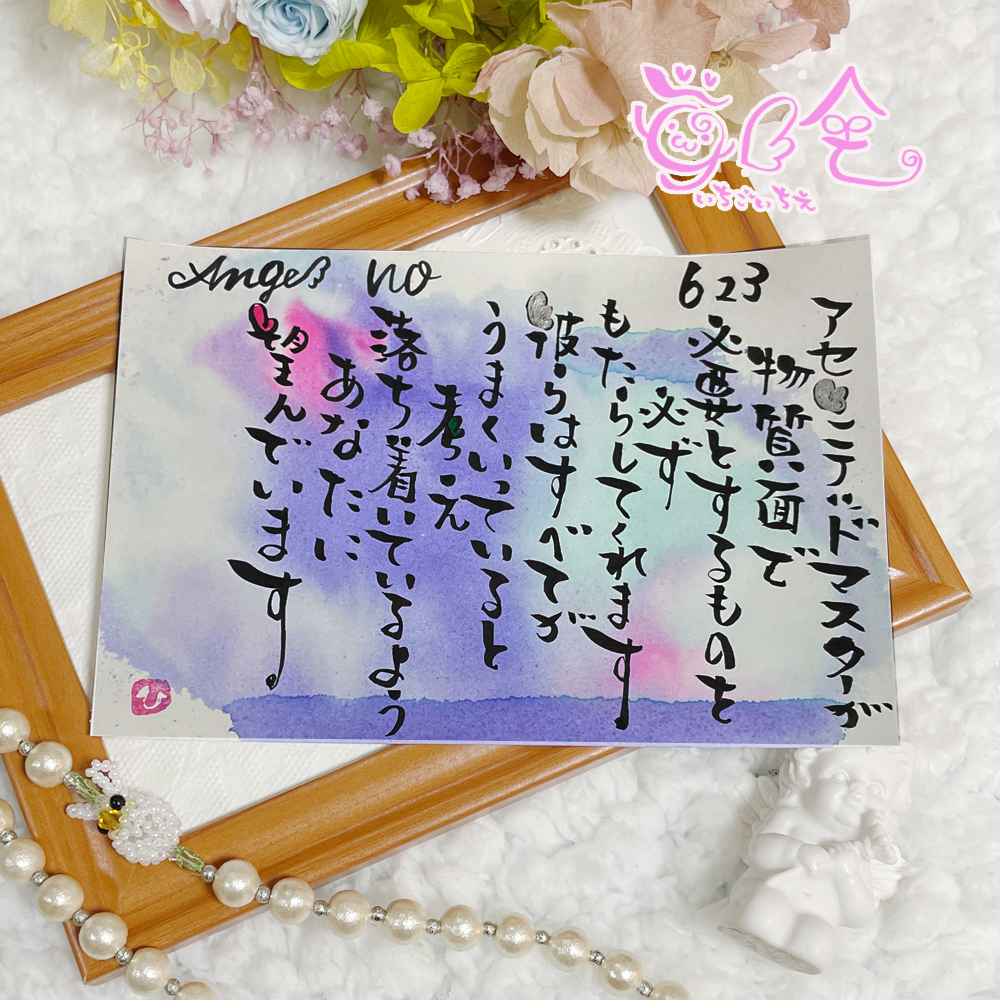 Angel NO 623
アセンテッドマスターが
物質面で
必要とするものを
必ず
もたらしてくれます
彼らはすべてが
うまくいっていると
考え
落ち着いているよう
あなたに
望んでいます
ひ
いちごいちえ